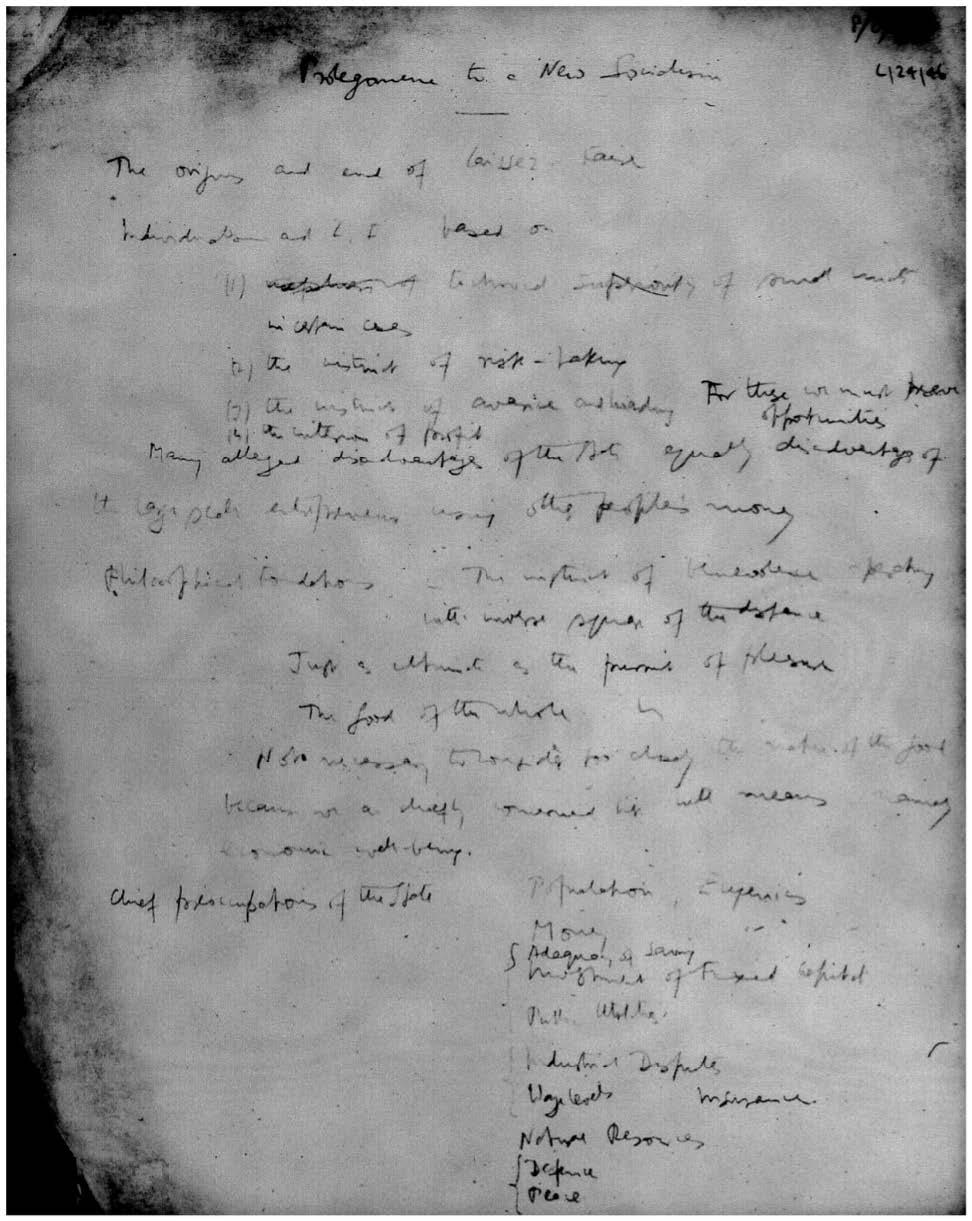 P/
4/24/46
Prolegomena to a New Socialism
The origins and end of Laissez-Faire
Individualism and L. F. based on
(1) technical superiority of small units
in certain cases
(2) the instinct of risk-taking
(3) the instinct of avarice and hoarding For these we must
opportunities
(4) the criterion of profit
Many alleged disadvantages of the State equally disadvantages of
the large scale entrepreneur using other people's money
Philosophical Foundations – The instinct of benevolence operating
with inverse square of the distance
Just as ultimate as the pursuit of pleasure
The good of the whole
Not necessary to consider too closely the nature of the good
because we are chiefly concerned with means namely
economic well-being.
Chief preoccupations of the State
Population, Eugenics
Money
Adequacy of Saving
Investment of Fixed Capital
Public Utilities
Industrial Disputes
Wage levels Insurance
Natural Resources
Defence
Peace